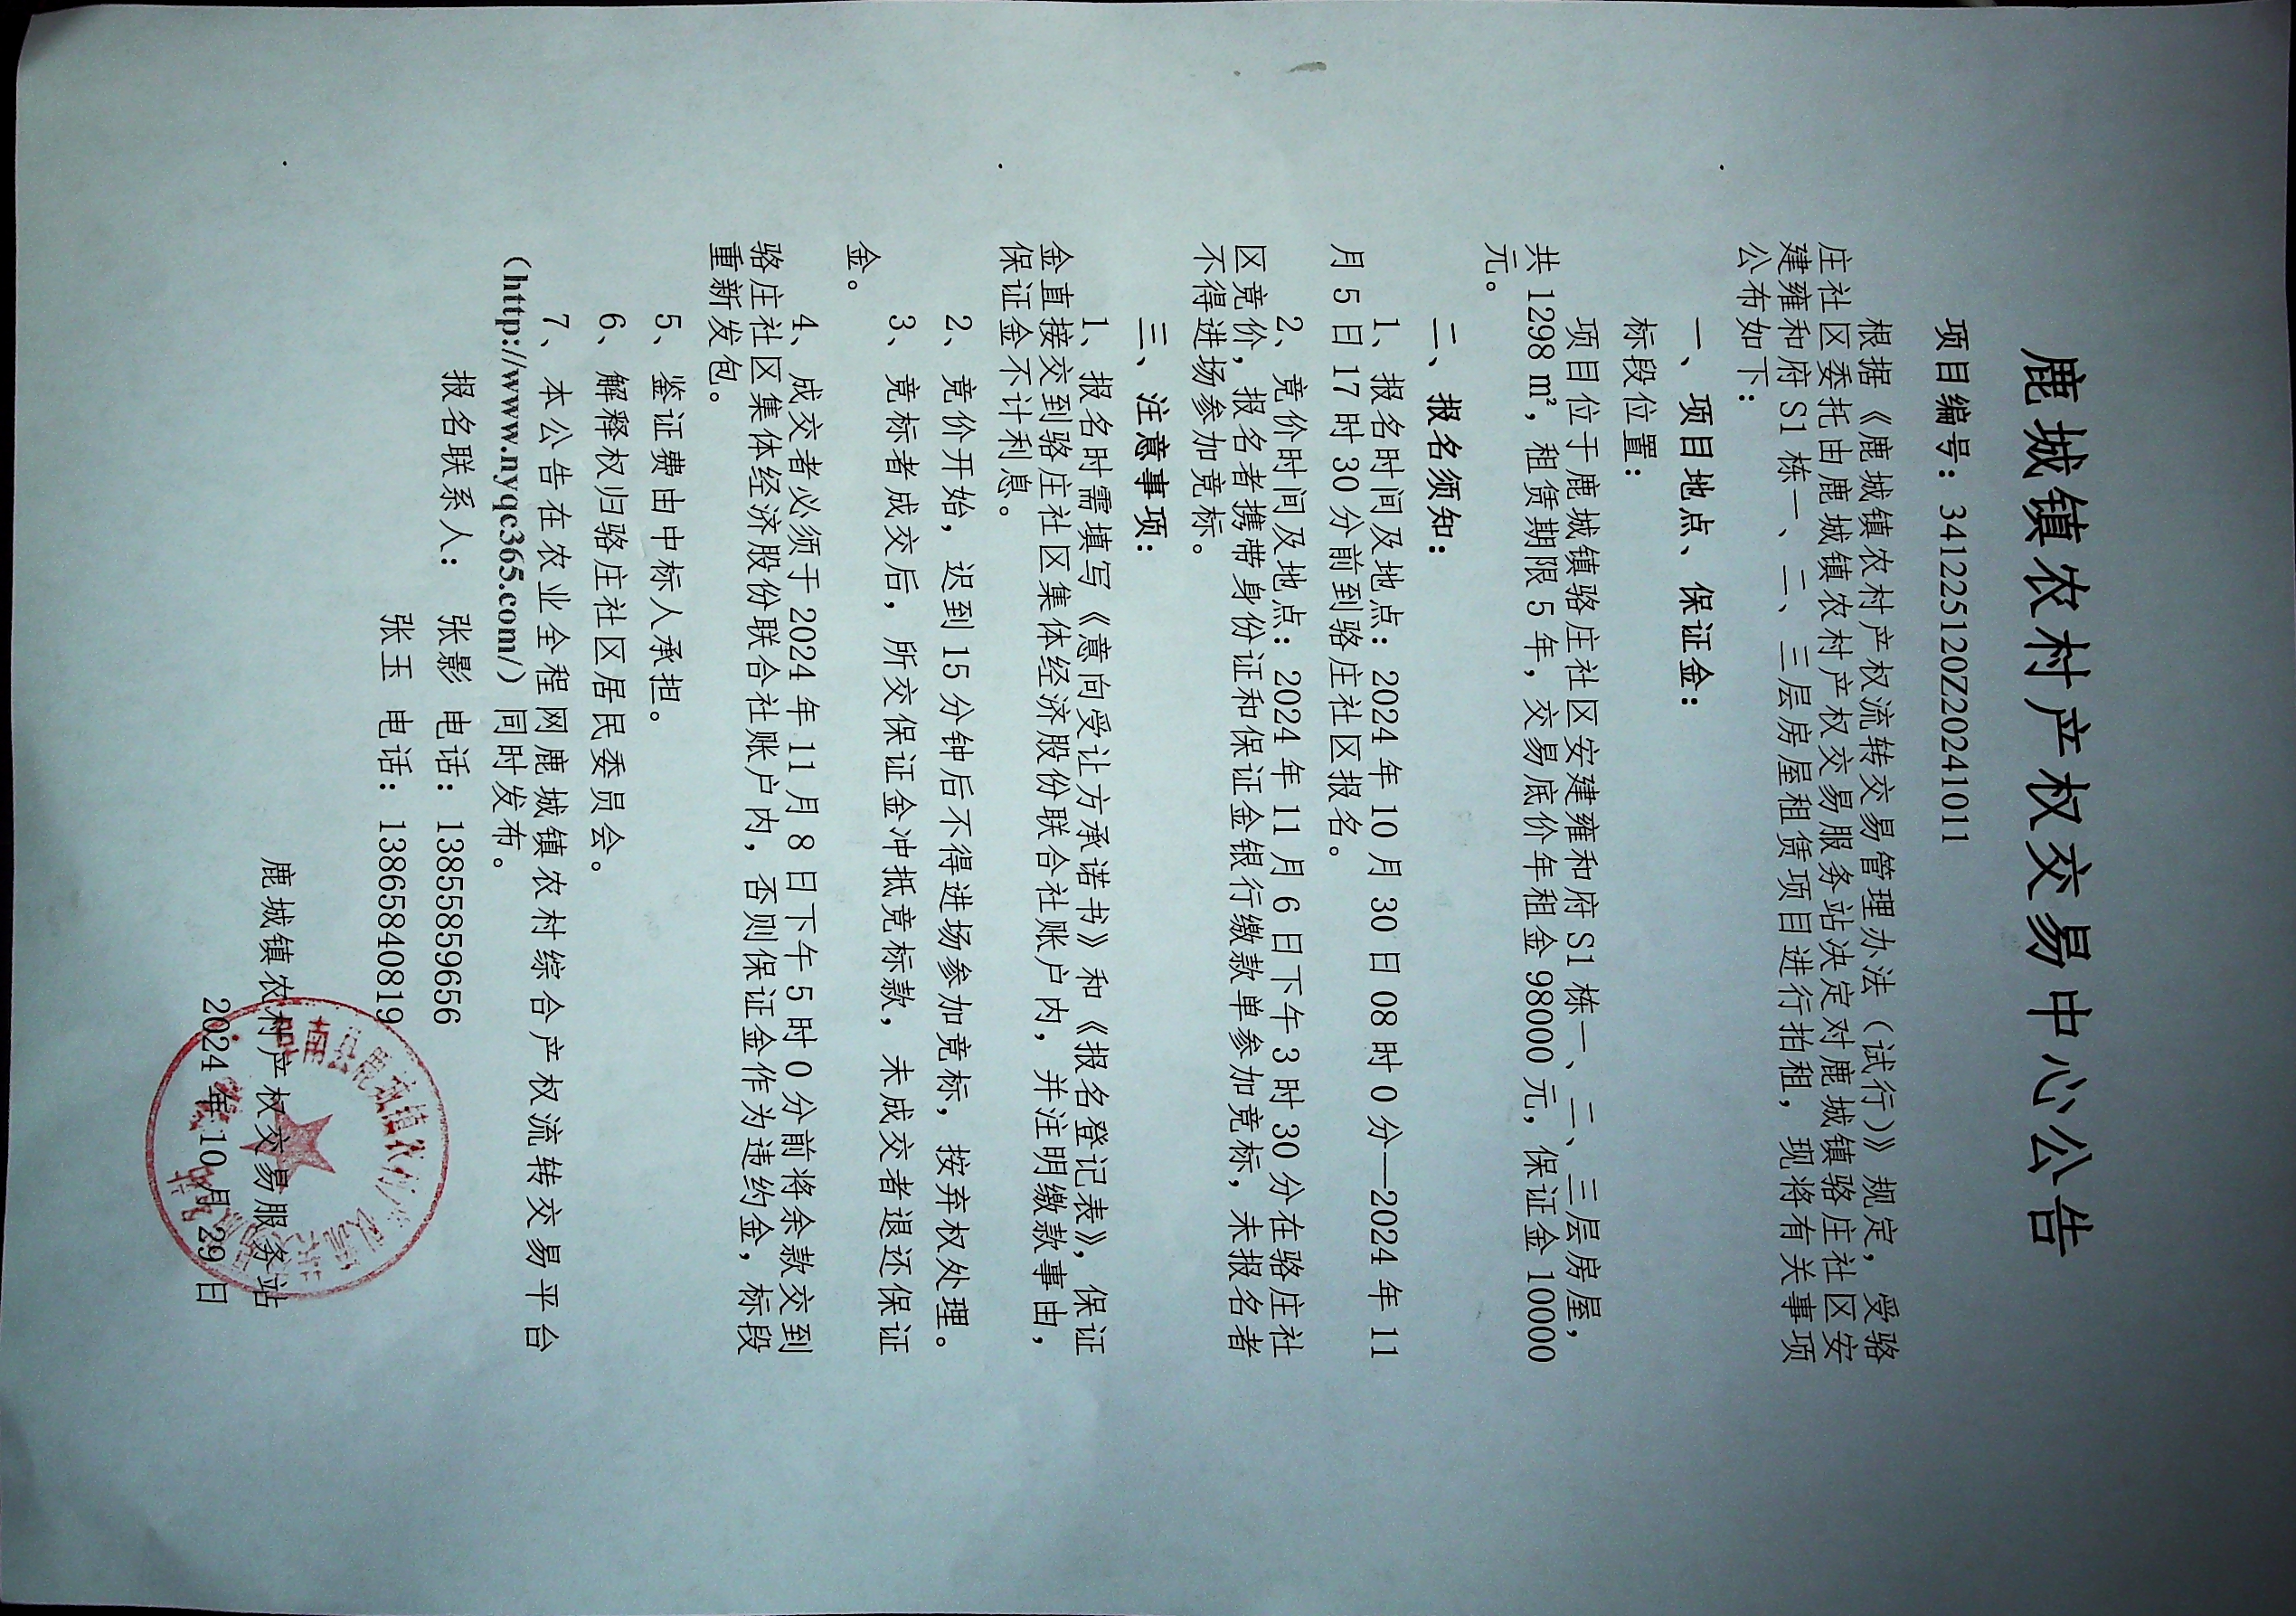 鹿城镇农村产权交易中心公告
项目编号：3412251120Z20241011
根据《鹿城镇农村产权流转交易管理办法（试行）》规定，受骆
庄社区委托由鹿城镇农村产权交易服务站决定对鹿城镇骆庄社区安
建雍和府 S1 栋一、二、三层房屋租赁项目进行拍租，现将有关事项
公布如下：
一、项目地点、保证金：
标段位置：
项目位于鹿城镇骆庄社区安建雍和府 S1 栋一、二、三层房屋，
共 1298 ㎡，租赁期限 5 年，交易底价年租金 98000 元，保证金 10000
元。
二、报名须知：
1、报名时间及地点：2024 年 10 月 30 日 08 时 0 分—2024 年 11
月 5 日 17 时 30 分前到骆庄社区报名。
2、竞价时间及地点：2024 年 11 月 6 日下午 3 时 30 分在骆庄社
区竞价，报名者携带身份证和保证金银行缴款单参加竞标，未报名者
不得进场参加竞标。
三、注意事项：
1、报名时需填写《意向受让方承诺书》和《报名登记表》，保证
金直接交到骆庄社区集体经济股份联合社账户内，并注明缴款事由，
保证金不计利息。
2、竞价开始，迟到 15 分钟后不得进场参加竞标，按弃权处理。
3、竞标者成交后，所交保证金冲抵竞标款，未成交者退还保证
金。
4、成交者必须于 2024 年 11 月 8 日下午 5 时 0 分前将余款交到
骆庄社区集体经济股份联合社账户内，否则保证金作为违约金，标段
重新发包。
5、鉴证费由中标人承担。
6、解释权归骆庄社区居民委员会。
7、本公告在农业全程网鹿城镇农村综合产权流转交易平台
（http://www.nyqc365.com/）同时发布。
报名联系人： 张影 电话：13855859656
张玉 电话：13865840819
鹿城镇农村产权交易服务站
2024 年 10 月 29 日